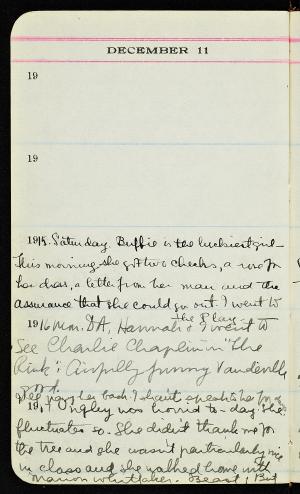 DECEMBER 11
19
19
1915. Saturday. Buffie is the luckiest girl
This morning she got two checks, a
her dress, a letter from her man and the
assurance that she could go out. I went to
the Play.
1916 Mon. DA, Hannah & I went to
See Charlie Chaplin in "The
Rink": Awfully funny Vaudeville
good.
her back I didn't speak to her
1917 was horrid to-day. She
fluctuates so. She didn't thank me for
the tree and she wasn't particularly nice
in class and she walked home with
Marion Whittaker. Beast! But